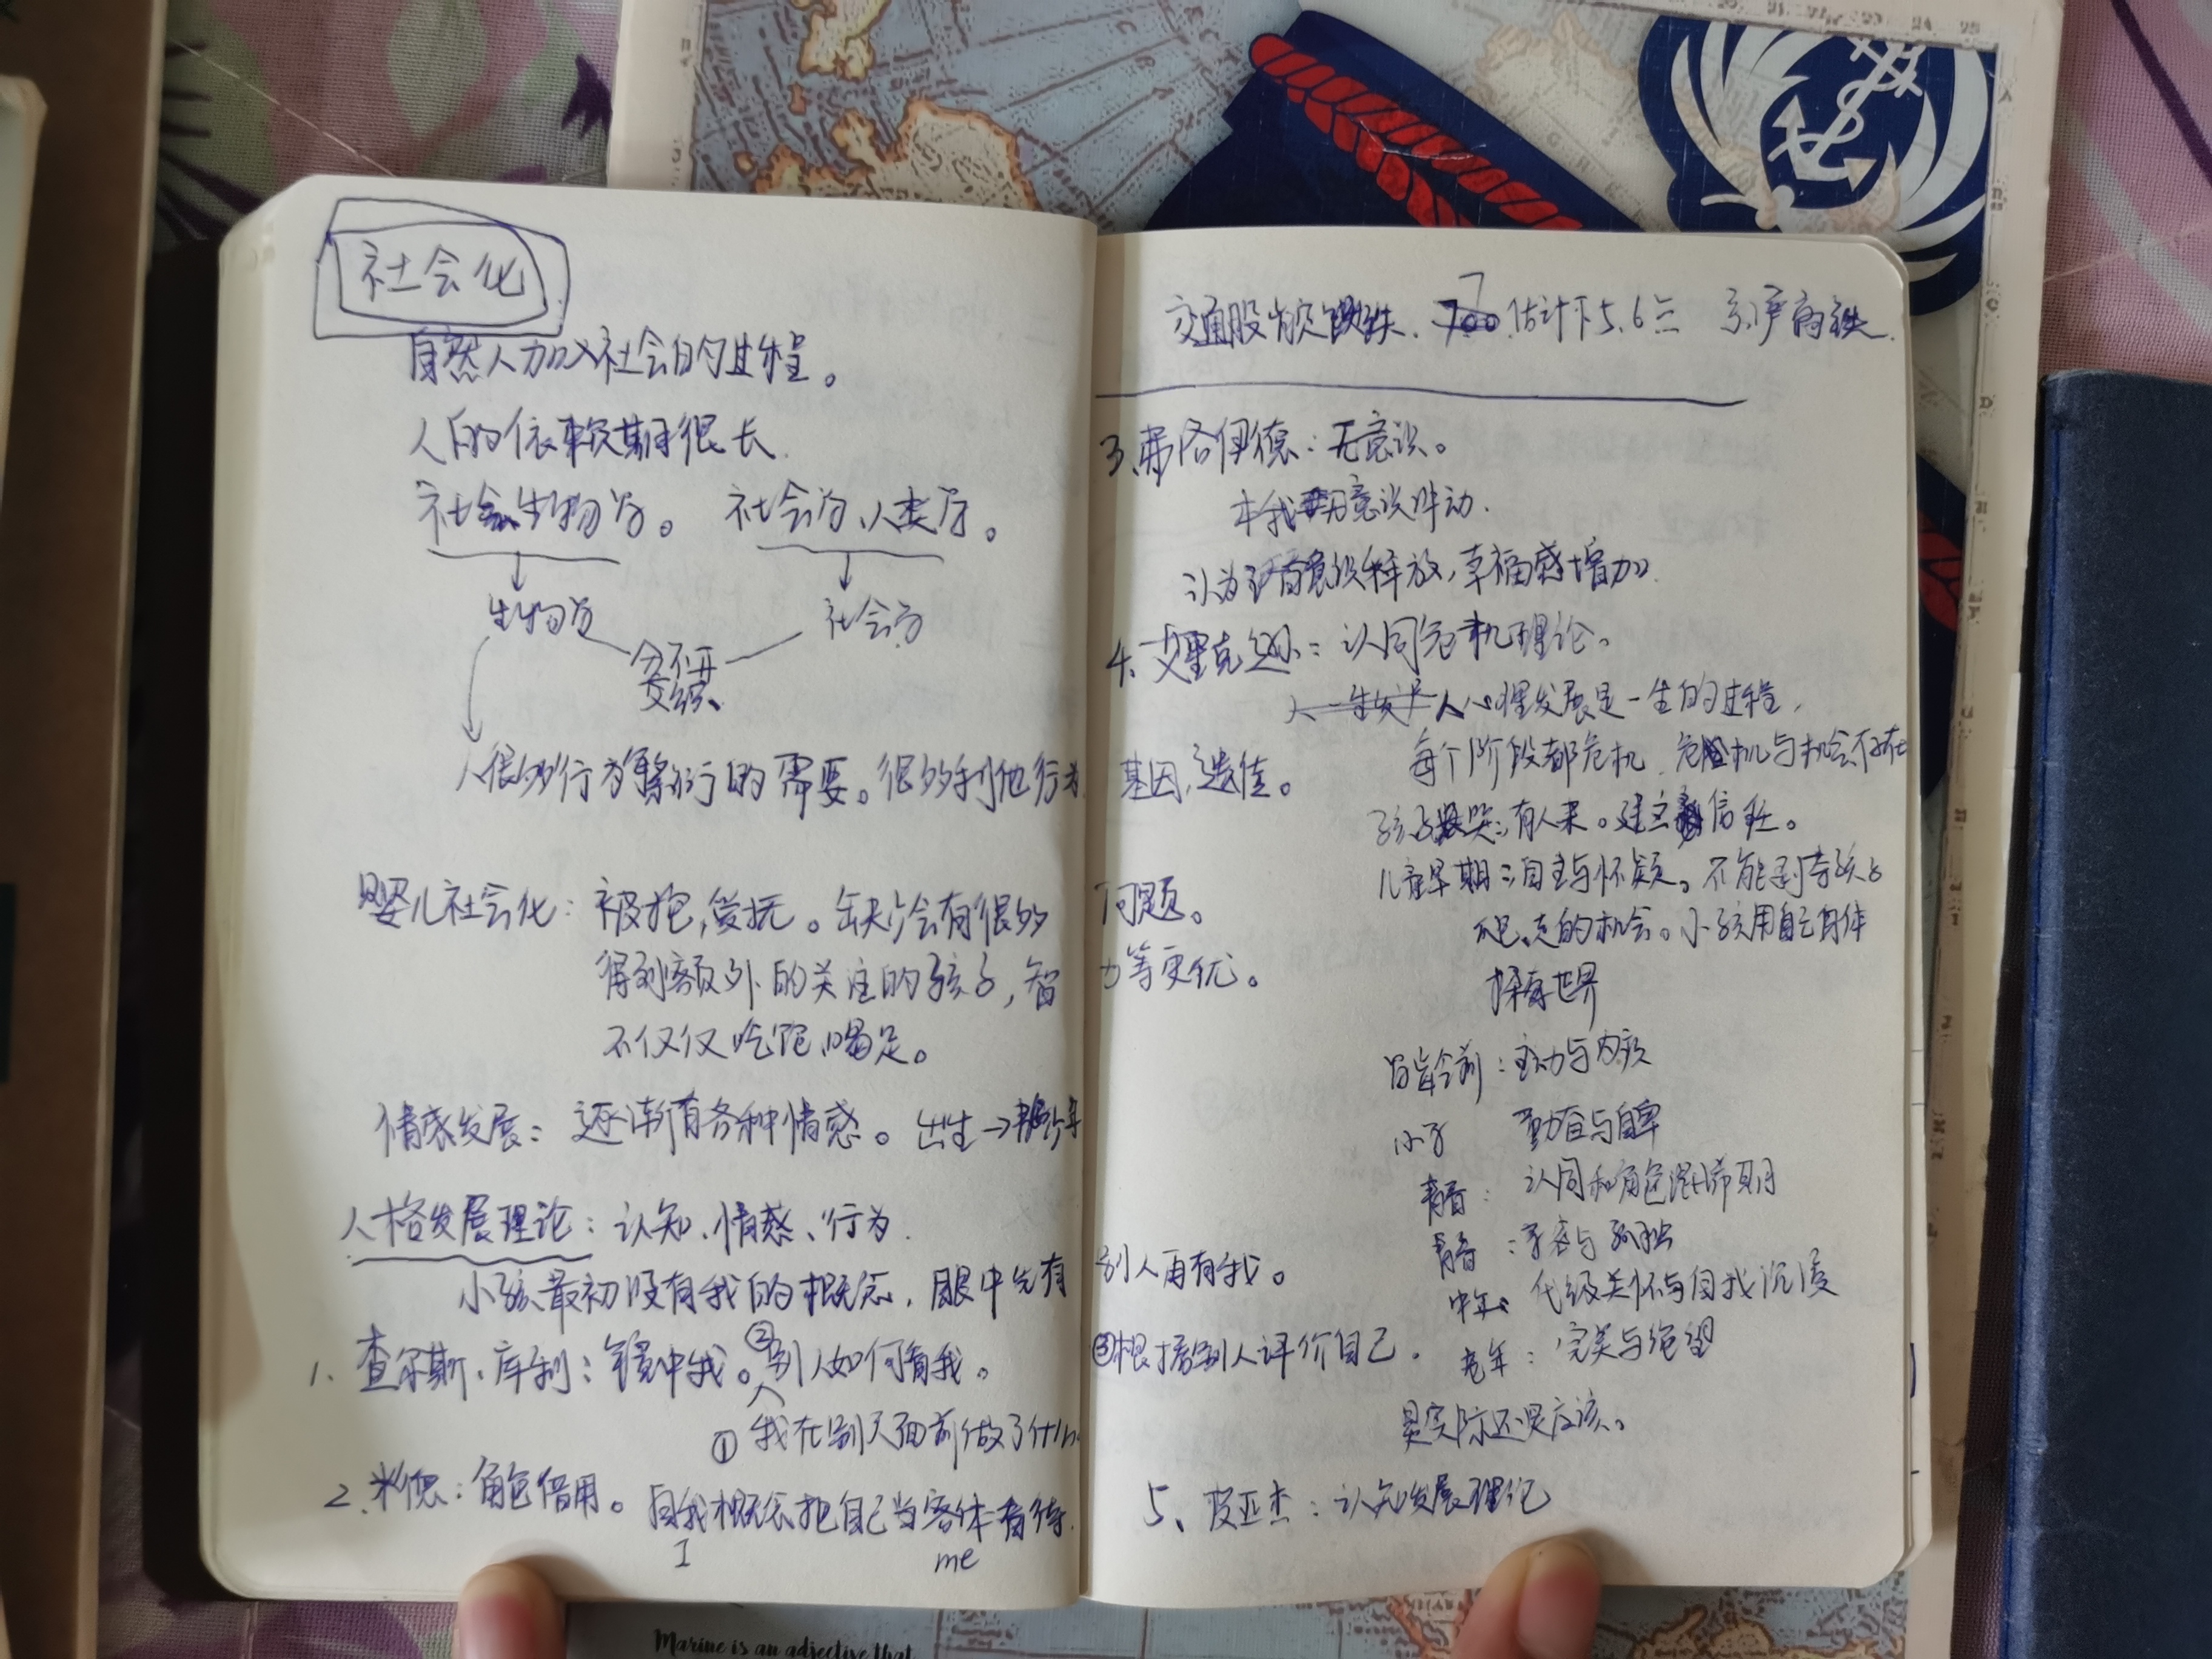 社会化
自然人加入社会的过程。
人的依赖期很长.
社会生物学。 社会学、人类学。
生物学 社会学
分不开
交织、
人很多行为繁衍的需要。很多利他行为 基因,遗传。
婴儿社会化: 被抱,爱抚。缺少会有很多 问题。
得到额外的关注的孩子,智 力等更优。
不仅仅吃饱、喝足。
情感发展: 逐渐有各种情感。 出生→
人格发展理论: 认知、情感、行为.
小孩最初没有我的概念, 眼中先有 别人再有我。
1. 查尔斯·库利: 镜中我。②别人如何看我。 ③根据别人评价自己.
① 我在别人面前做了什么
2. 米德: 角色借用。 自我概念把自己当客体看待.
I me
交通股肯定 铁. 7 估计下5.6 高铁.
3、弗洛伊德: 无意识。
本我 意识冲动.
认为 意识释放,幸福感增加.
4、艾里克逊: 认同危机理论。
人心理发展是一生的过程.
每个阶段都危机. 危机与机会
孩子哭: 有人来。建立信任。
儿童早期: 自主与怀疑。不能剥夺孩子
爬、走的机会。小孩用自己身体
探索世界
学龄前: 主动与内疚
小学 勤奋与自卑
青春: 认同和角色混淆期
青春: 亲密与孤独
中年: 代级关怀与自我沉浸
老年: 完美与绝望
是实际还是应该。
5、皮亚杰: 认知发展理论
Marine is an adjective that